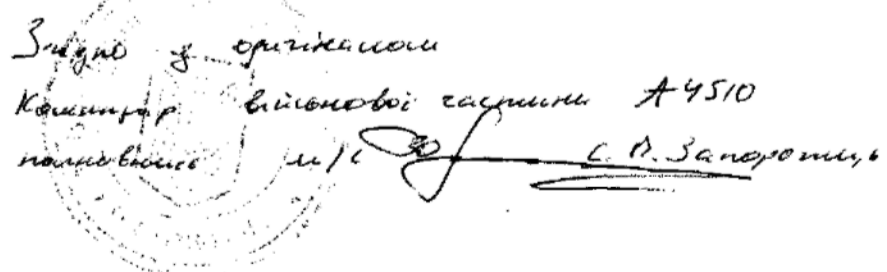 Згідно з оригіналом
Командир військової частини А4510
полковник м/с С. В. Запорожець